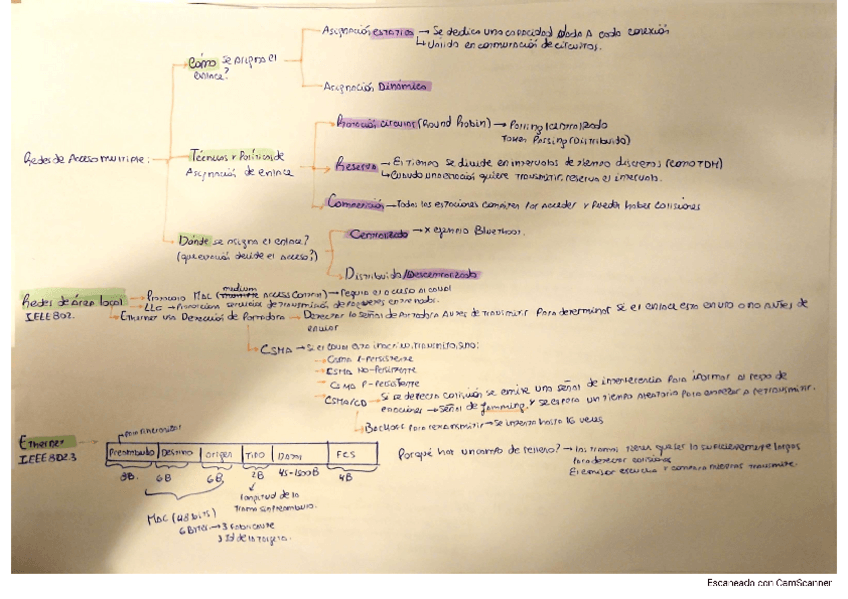 Redes de Acceso multiple:
Cómo se asigna el enlace?
Asignación estática → Se dedica una capacidad dada a cada conexión
↳ Valido en conmutación de circuitos.
Asignación Dinámica
Técnicas y Políticas de Asignación de enlace
Rotación circular (Round Robin) → Polling (centralizado)
Token Passing (Distribuido)
Reserva → El Tiempo se divide en intervalos de tiempo discretos (como TDM)
↳ Cuando una estación quiere transmitir, reserva el intervalo.
Competición → Todas las estaciones compiten por acceder y pueden haber colisiones
Dónde se asigna el enlace?
(que estación decide el acceso?)
Centralizado → x ejemplo Bluethoot.
Distribuido/Descentralizado
Redes de área local IEEE 802.
Protocolo MAC (medium Access Control) → regula el acceso al canal
LLC → Proporcion servicios de transmisión de paquetes entre nodos.
Ethernet via Detección de Portadora → Detectar la señal de Portadora Antes de Transmitir para determinar si el enlace esta en uso o no Antes de enviar
CSMA → Si el canal esta inactivo, transmito, sino:
→ CSMA 1-Persistente
→ CSMA No-Persistente
→ CSMA P-Persistente
CSMA/CD → Si se detecta colisión se emite una señal de interferencia para informar al resto de estaciones → señal de Jamming y se espera un tiempo aleatorio para empezar a retransmitir.
Backoff para retransmitir → Se intenta hasta 16 veces
Ethernet IEEE 802.3
para sincronizar
Preambulo | Destino | origen | Tipo | Datos | FCS
8B. 6B 6B 2B 45-1500B 4B
longitud de la trama sin preambulo.
MAC (48 bits)
6 Bytes → 3 Fabricante
3 Id de la Tarjeta.
Porqué hay un campo de relleno? → las tramas tienen que ser lo suficientemente largas para detectar colisiones
El emisor escucha y compara mientras transmite.
Escaneado con CamScanner